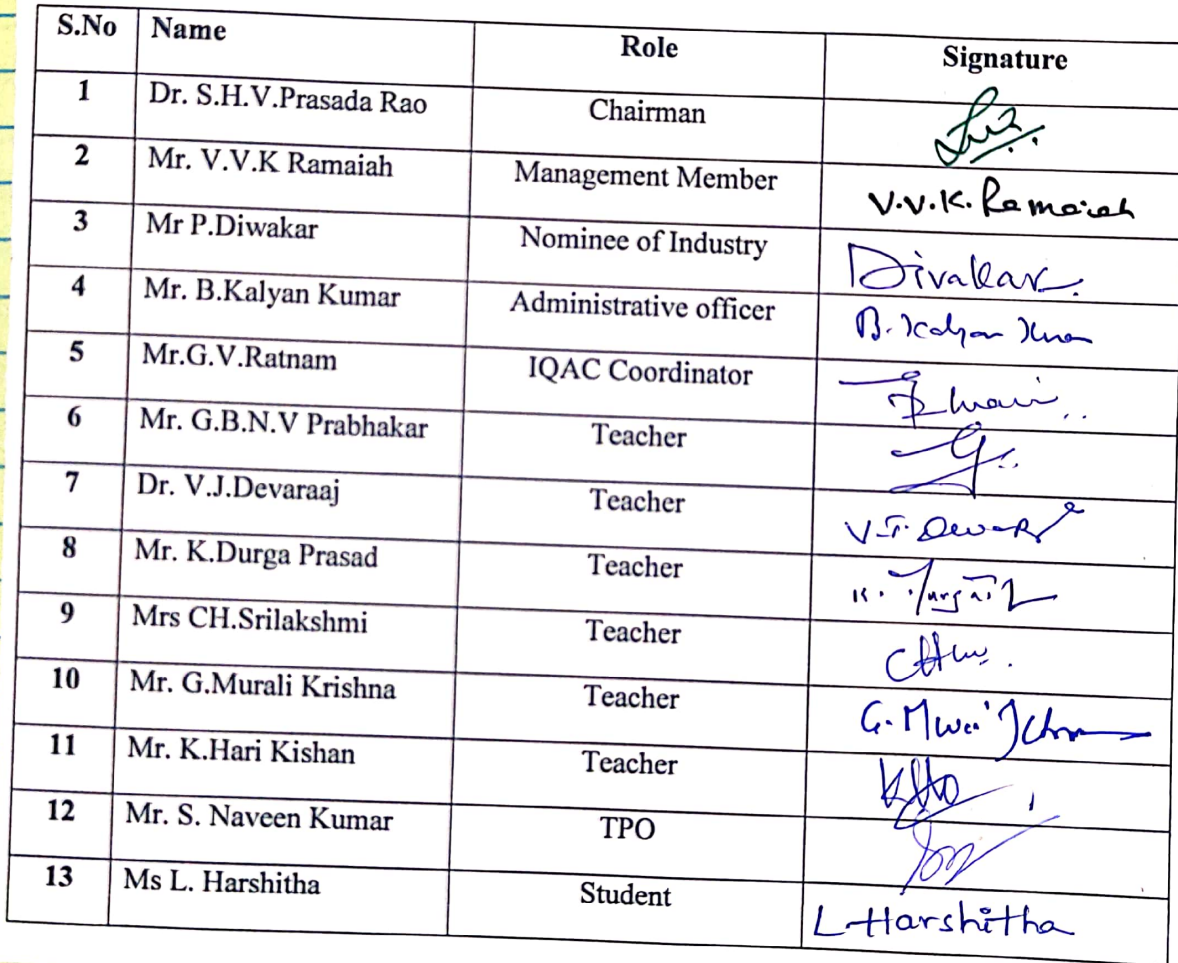 S.No Name Role Signature
1 Dr. S.H.V.Prasada Rao Chairman
2 Mr. V.V.K Ramaiah Management Member V.V.K. Ramaiah
3 Mr P.Diwakar Nominee of Industry Divakar
4 Mr. B.Kalyan Kumar Administrative officer B. Kalyan
5 Mr.G.V.Ratnam IQAC Coordinator
6 Mr. G.B.N.V Prabhakar Teacher
7 Dr. V.J.Devaraaj Teacher V.J.
8 Mr. K.Durga Prasad Teacher K.
9 Mrs CH.Srilakshmi Teacher
10 Mr. G.Murali Krishna Teacher G.
11 Mr. K.Hari Kishan Teacher
12 Mr. S. Naveen Kumar TPO
13 Ms L. Harshitha Student L Harshitha